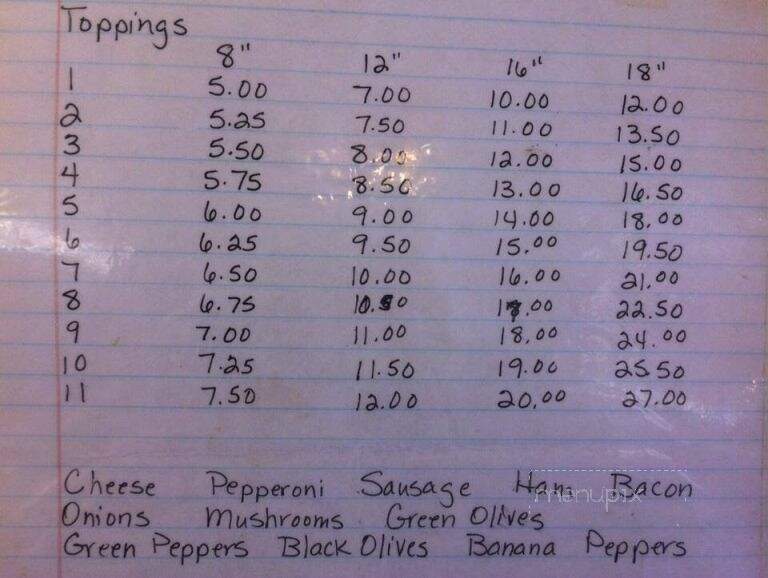 Toppings
8" 12" 16" 18"
1 5.00 7.00 10.00 12.00
2 5.25 7.50 11.00 13.50
3 5.50 8.00 12.00 15.00
4 5.75 8.50 13.00 16.50
5 6.00 9.00 14.00 18.00
6 6.25 9.50 15.00 19.50
7 6.50 10.00 16.00 21.00
8 6.75 10.50 17.00 22.50
9 7.00 11.00 18.00 24.00
10 7.25 11.50 19.00 25.50
11 7.50 12.00 20.00 27.00
Cheese Pepperoni Sausage Ham Bacon
menupix
Onions Mushrooms Green Olives
Green Peppers Black Olives Banana Peppers